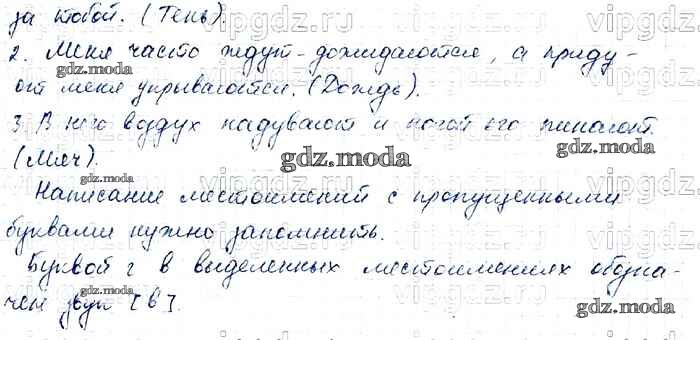 за тобой. (Тень).
2. Меня часто ждут - дожидаются, а приду -
от меня укрываются. (Дождь).
3. В него воздух надувают и ногой его пинают.
(Мяч).
Написание местоимений с пропущенными
буквами нужно запомнить.
Буквой г в выделенных местоимениях обозна-
чен звук [в].
gdz.moda
gdz.moda
gdz.moda
gdz.moda
gdz.moda
gdz.moda
vipgdz.ru